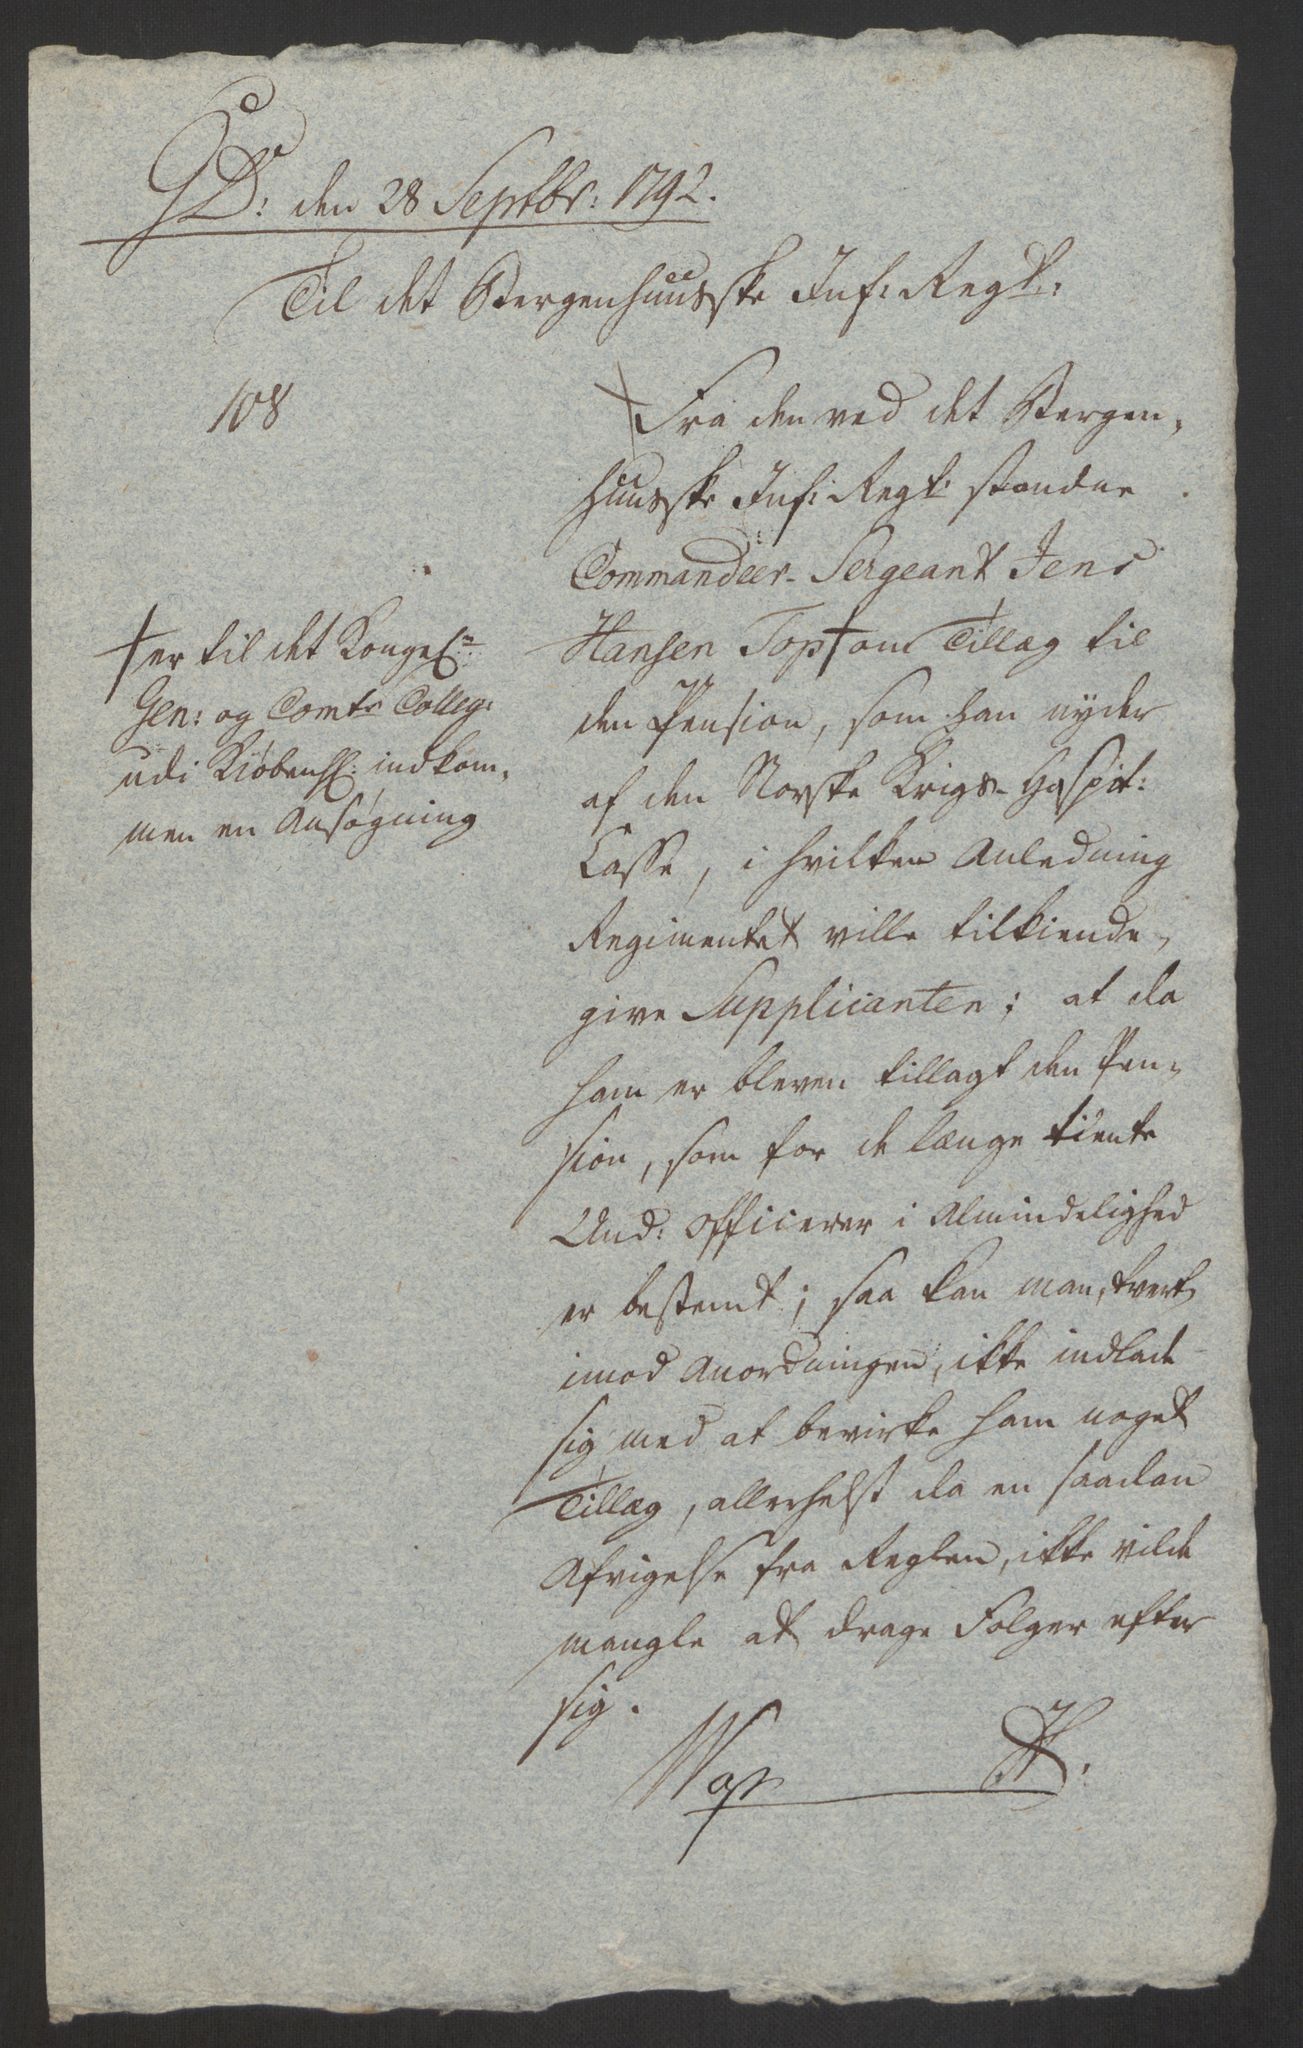 GD: den 28 Septbr: 1792.
Til det Bergenhuusske Inf: Regt:
108
Fra den ved det Bergen,
huusske Inf: Regt: staaende
Commandeer-Sergeant Jens
Hansen Top † om Tillæg til
den Pension, som han nyder
af den Norske Krigs-Hospit:
Casse, i hvilken Anledning
Regimentet ville tilkiende,
give Supplicanten; at da
ham er bleven tillagt den Pen,
sion, som for de længe tiente
Und: Officerer i Almindelighed
er bestemt; saa kan man, tvert
imod Anordningen, ikke indlade
sig med at bevirke ham noget
Tillæg, allerhelst da en saadan
Afvigelse fra Reglen, ikke vilde
mangle at drage Folger efter
sig.
† er til det Kongel:
Gen: og Comts Colleg:
udi Kiøbenh: indkom,
men en Ansøgning